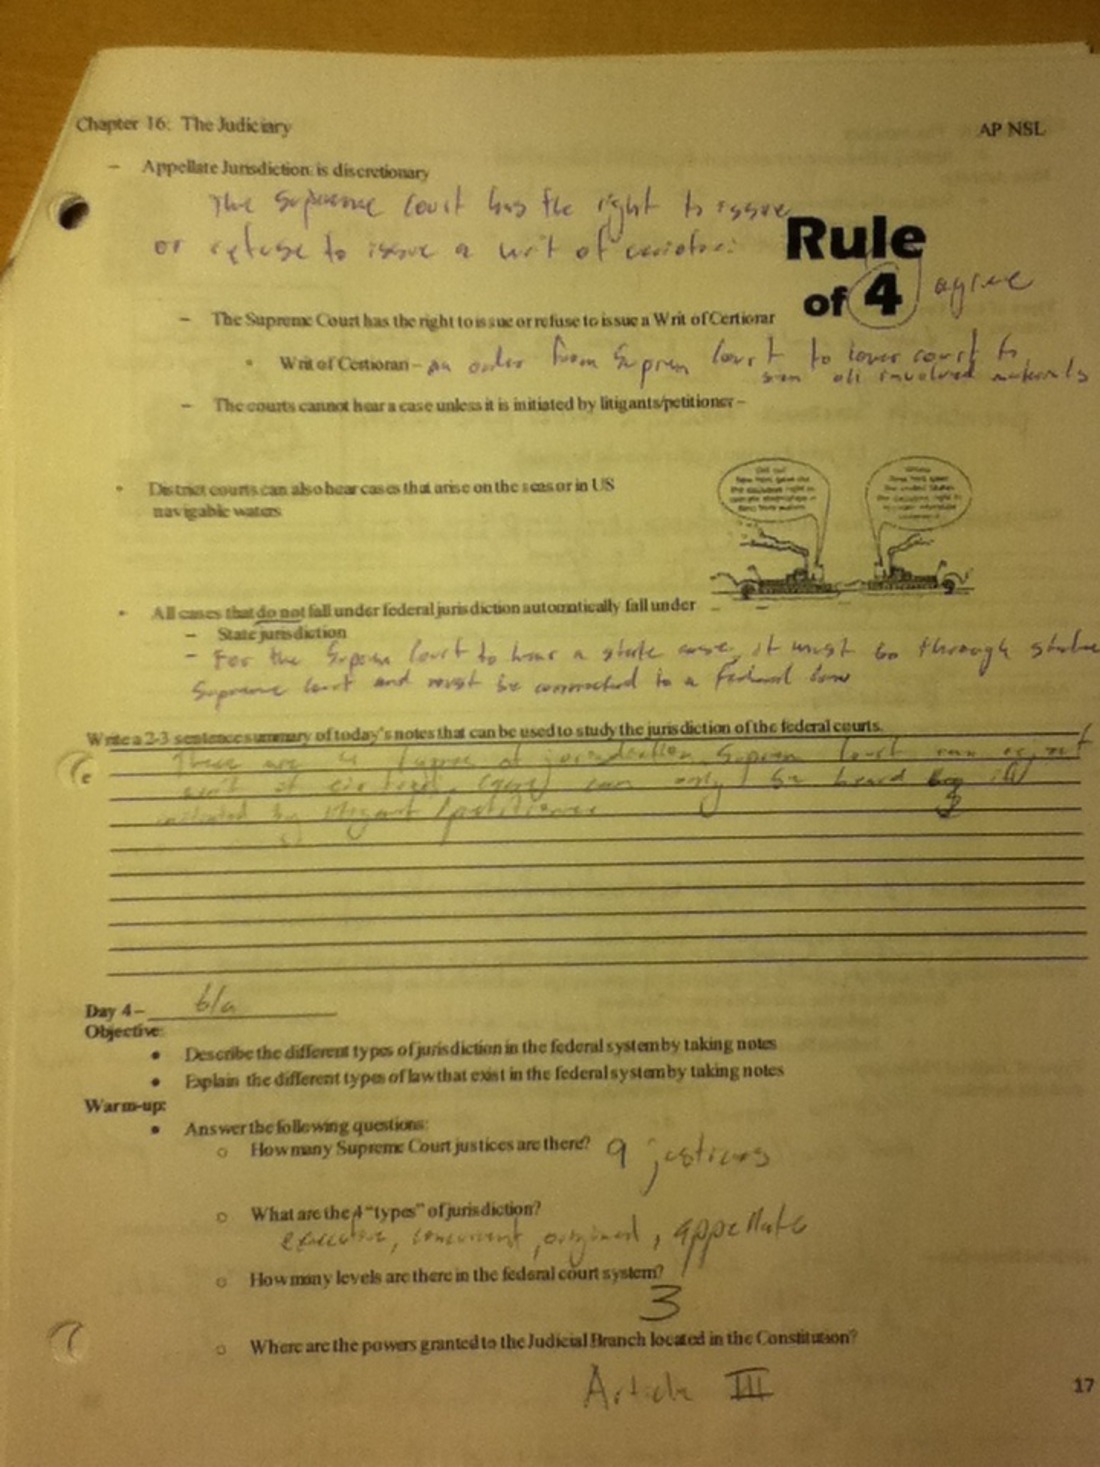 Chapter 16: The Judiciary
AP NSL
– Appellate Jurisdiction: is discretionary
The Supreme Court has the right to issue
or refuse to issue a writ of
Rule
of 4 agree
– The Supreme Court has the right to issue or refuse to issue a Writ of Certiorar
• Writ of Certiorari – an order from Suprem Court to lower court to
all involved materials
– The courts cannot hear a case unless it is initiated by litigants/petitioner –
• District courts can also hear cases that arise on the seas or in US
navigable waters
• All cases that do not fall under federal jurisdiction automatically fall under
– State jurisdiction
– For the Suprem Court to hear a state case, it must go through
Supreme Court and must be connected to a Federal law
Write a 2-3 sentence summary of today's notes that can be used to study the jurisdiction of the federal courts.
There are 4 of jurisdiction. Suprem Court can
can only be heard
by litigant / petitioner
Day 4 –
Objective:
• Describe the different types of jurisdiction in the federal system by taking notes
• Explain the different types of law that exist in the federal system by taking notes
Warm-up:
• Answer the following questions:
o How many Supreme Court justices are there? 9 justices
o What are the 4 "types" of jurisdiction?
concurrent, original, appellate
o How many levels are there in the federal court system?
3
o Where are the powers granted to the Judicial Branch located in the Constitution?
Article III
17